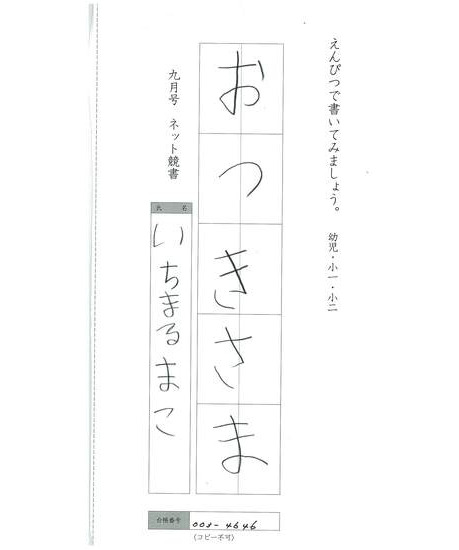 えんぴつで書いてみましょう。 幼児・小一・小二
おつきさま
九月号 ネット競書
氏名
いちまるまこ
合格番号 008-4646
(コピー不可)